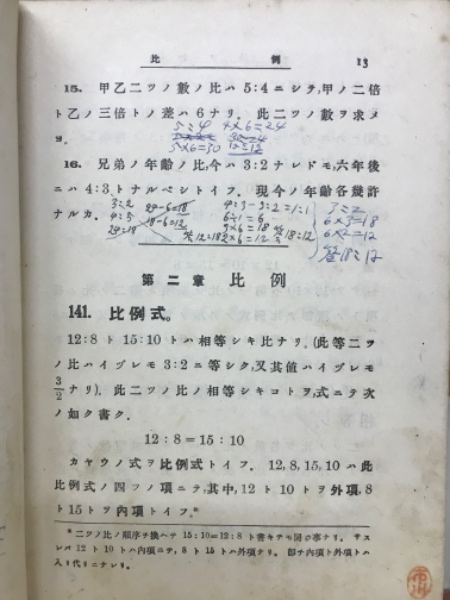 比例 13
15. 甲乙二ツノ數ノ比ハ 5:4 ニシテ,甲ノ二倍
ト乙ノ三倍トノ差ハ 6 ナリ. 此二ツノ數ヲ求メ
ヨ.
5:4 4×6=24
5×6=30 12:12
16. 兄弟ノ年齡ノ比,今ハ 3:2 ナレドモ,六年後
ニハ 4:3 トナルベシトイフ. 現今ノ年齡各幾許
ナルカ.
3:2 24-6=18 4:3-3:2=1:1 3:2
4:3 18-6=12 6÷1=6 6×3=18
24:18 9×6=18 答18:12 6×2=12
答12:18 2×6=12 答18:12
第二章 比例
141. 比例式。
12:8 ト 15:10 トハ相等シキ比ナリ.(此等二ツ
ノ比ハイヅレモ 3:2 ニ等シク,又其値ハイヅレモ
3/2 ナリ). 此二ツノ比ノ相等シキコトヲ式ニテ次
ノ如ク書ク.
12:8=15:10
カヤウノ式ヲ比例式トイフ. 12, 8, 15, 10 ハ此
比例式ノ四ツノ項ニテ,其中, 12 ト 10 トヲ外項, 8
ト 15 トヲ內項トイフ.*
*二ツノ比ノ順序ヲ換ヘテ 15:10=12:8 ト書キテモ同ジ事ナリ. サス
レバ 12 ト 10 トハ內項ニテ, 8 ト 15 トハ外項ナリ. 卽チ內項ト外項トハ
入リ代リニナレリ.